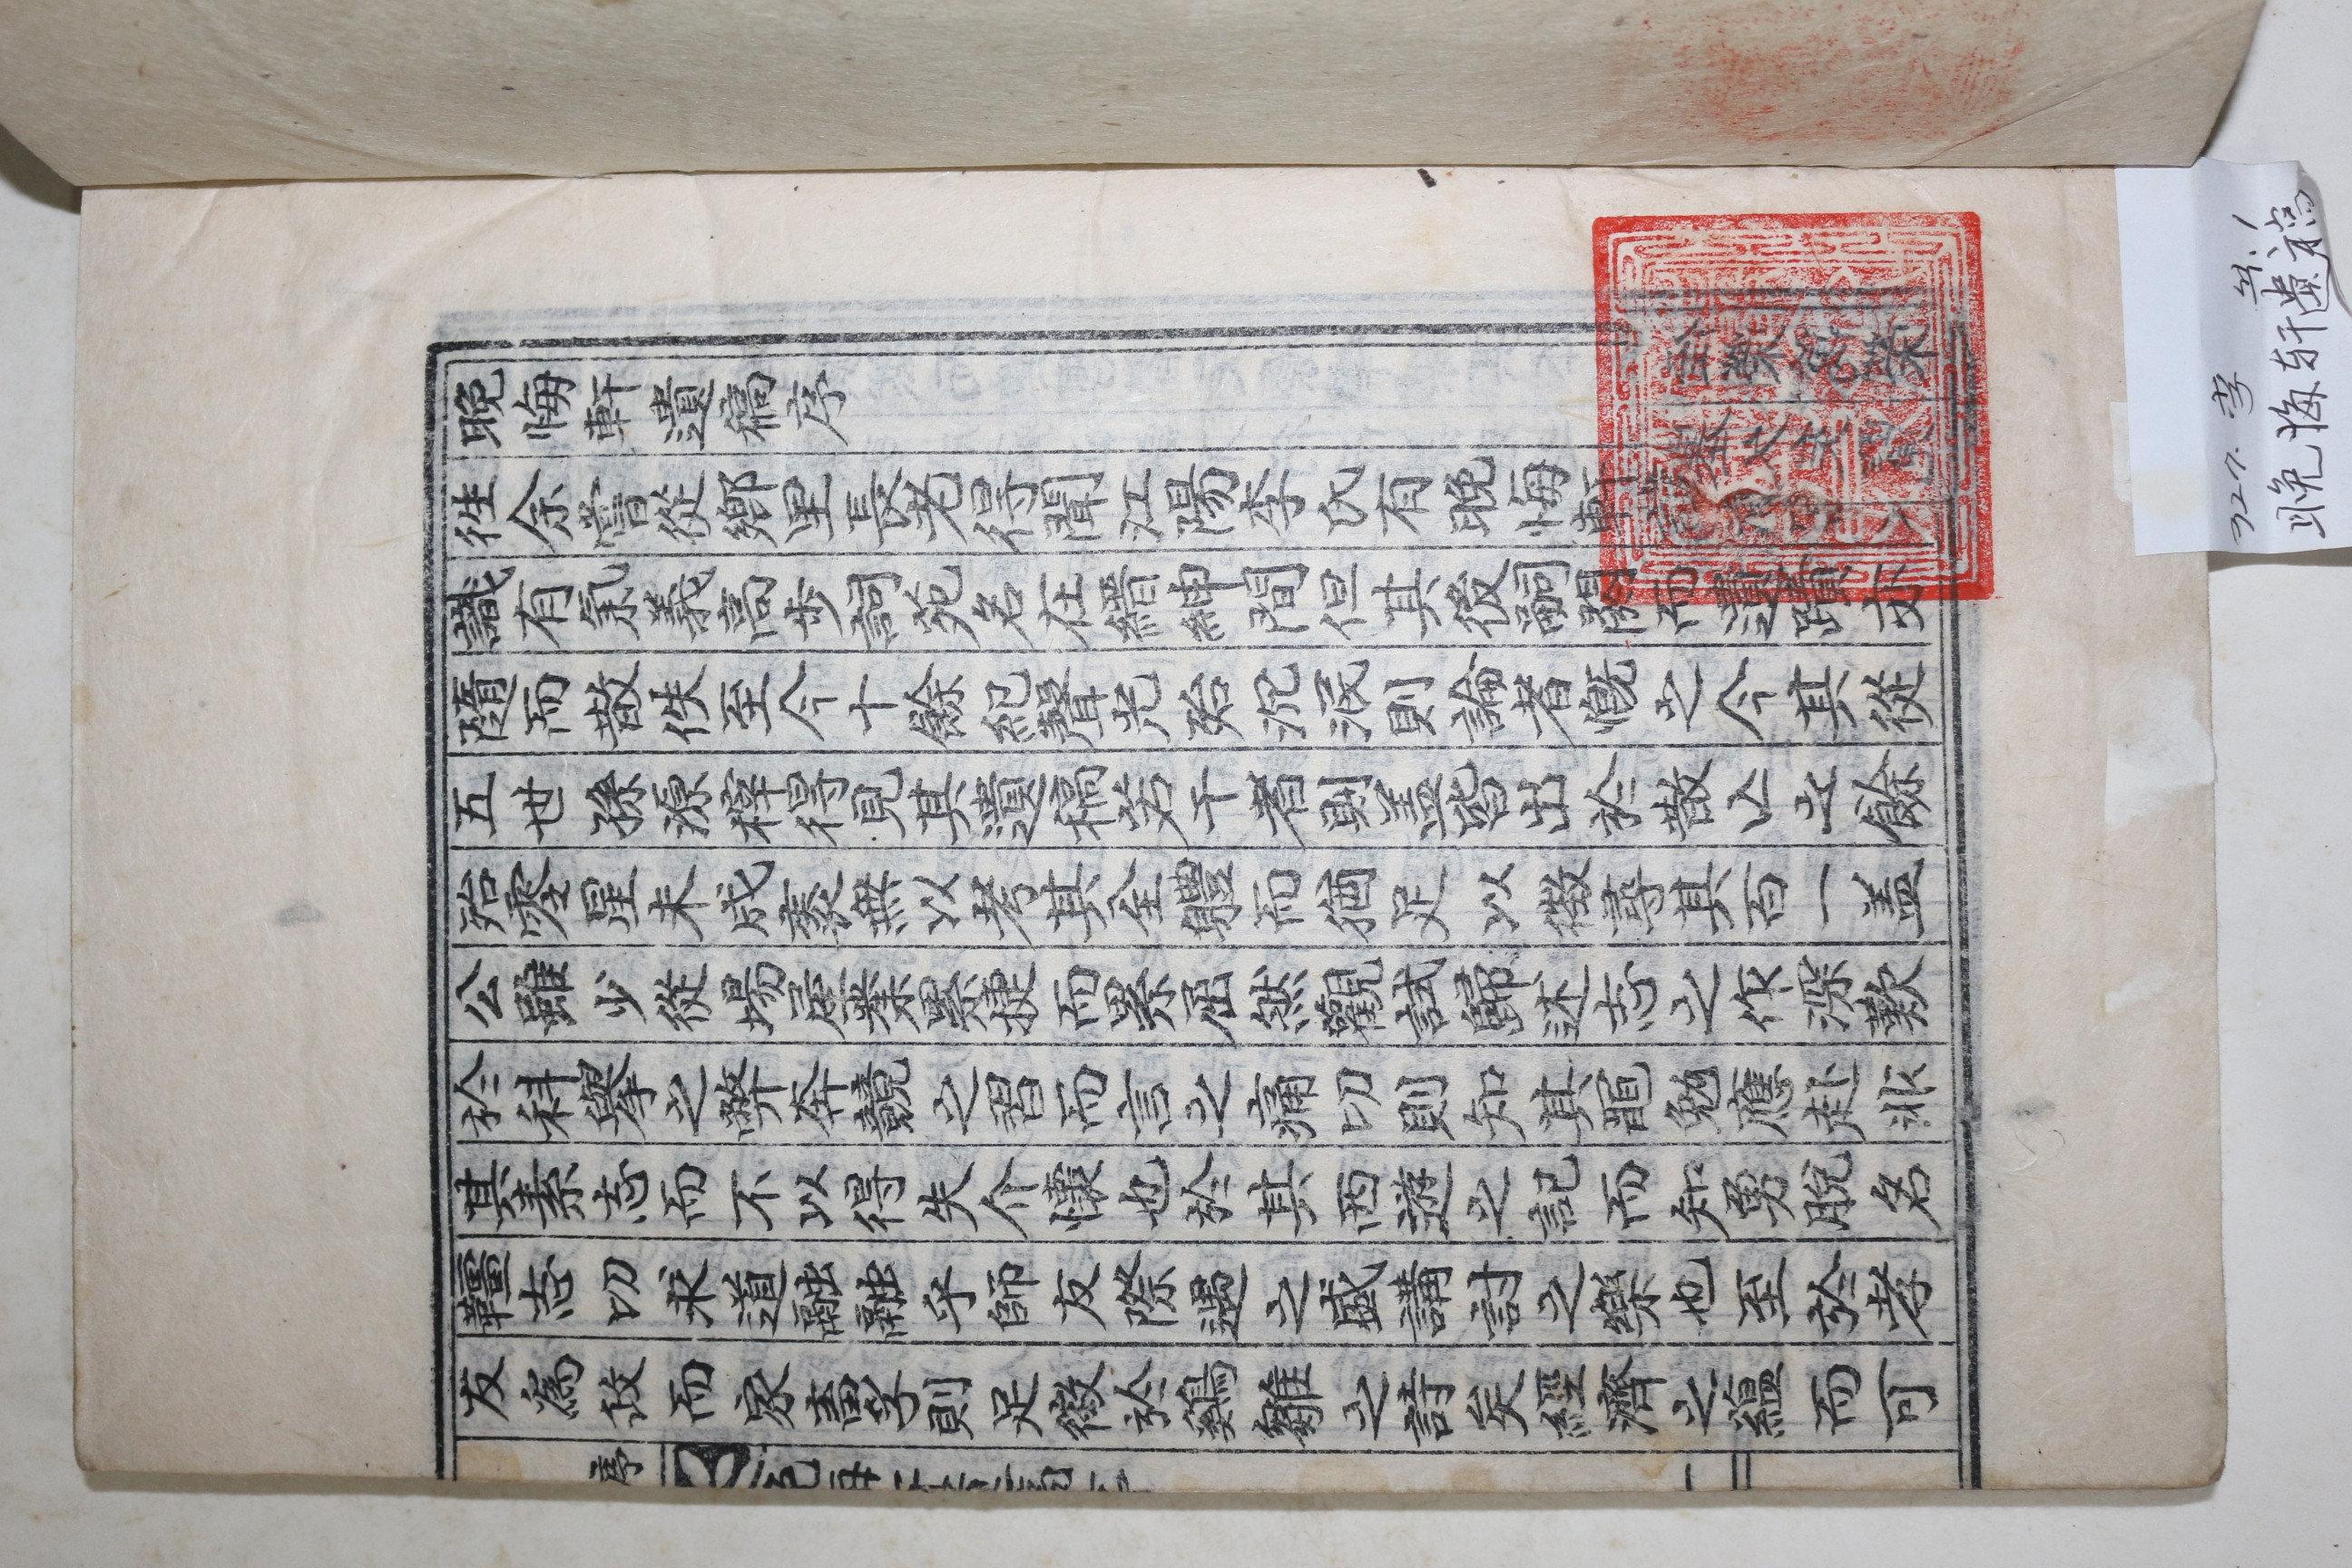 晩悔軒遺稿序
徃余嘗從鄉里長老得聞江陽李氏有晩悔軒
識有氣義高步詞苑名在縉紳間但其後嗣闕而遺蹟亦
隨而散佚至今十餘紀聲光殆沉泯則論者慨之今其從
五世孫源梓得見其遺稿若干者則盖皆出於散亡之餘
殆零星未成袠無以考其全軆而猶足以徴尋其百一盖
公雖少從場屋業累捷而累屈然觀試歸述志之作深歎
於科擧之弊奔競之習而言之痛切則知其黽勉應赴非
其素志而不以得失介懷也於其西遊之記而知勇脫名
韁志切求道融融乎師友際遇之盛講討之樂也至於孝
友爲政而家畜孚則足徵於鷄雛之詩矣經濟之蘊而可
序
一
327. 李
晩悔轩遺稿